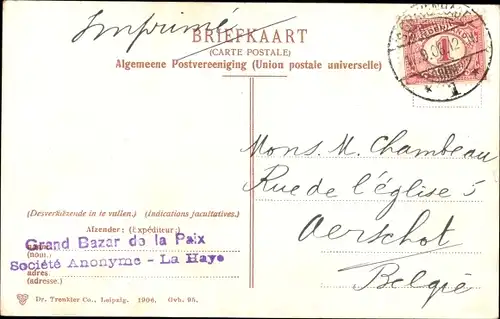 Imprimé
BRIEFKAART
(CARTE POSTALE)
Algemeene Postvereeniging (Union postale universelle)
1
Mons. M. Chambeau
Rue de l'église 5
Aerschot
Belgie
(Desverkiezende in te vullen.) (Indications facultatives.)
Afzender: (Expéditeur:)
Grand Bazar de la Paix
(nom.)
Société Anonyme - La Haye
adres
(adresse.)
Dr. Trenkler Co., Leipzig. 1906. Gvh. 95.